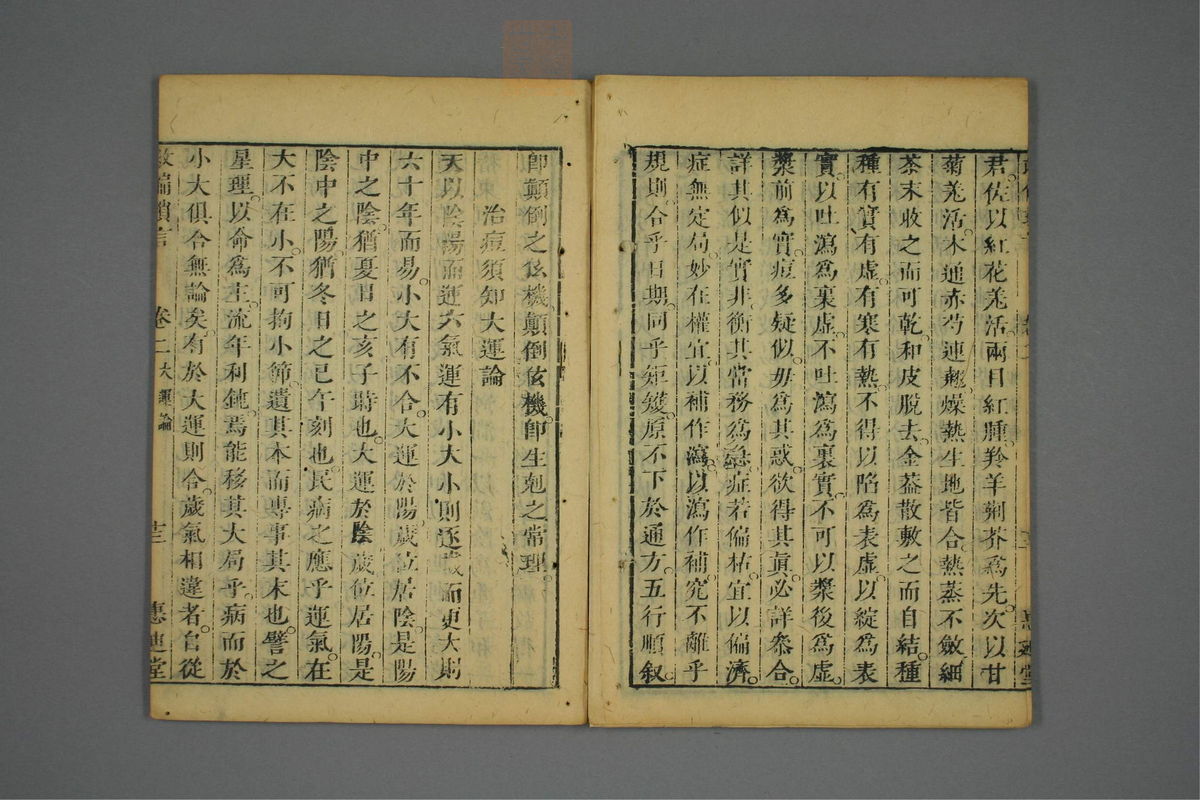 君佐以紅花羌活兩目紅腫羚羊荊芥爲先次以甘
菊羌活木通赤芍連翹燥熱生地皆合熱蒸不斂細
茶末收之而可乾和皮脫去金蓋散敷之而自結種
種有實有虛有寒有熱不得以陷爲表虛以綻爲表
實以吐瀉爲裏虛不吐瀉爲裏實不可以漿後爲虛
漿前爲實痘多疑似毋爲其惑欲得其眞必詳參合
詳其似是實非衡其當務爲急症若偏枯宜以偏濟
症無定局妙在權宜以補作瀉以瀉作補究不離乎
規則合乎日期同乎矩矱原不下於通方五行順敘
卽顛倒之玄機顛倒玄機卽生剋之常理
治痘須知大運論
天以陰陽而運六氣運有小大小則逐歲而更大則
六十年而易小大有不合大運於陽歲位居陰是陽
中之陰猶夏日之亥子時也大運於陰歲位居陽是
陰中之陽猶冬日之巳午刻也民病之應乎運氣在
大不在小不可拘小節遺其本而專事其末也譬之
星理以命爲主流年利鈍焉能移其大局乎病而於
小大俱合無論矣有於大運則合歲氣相違者自從
救偏瑣言 卷二 大運論 十三 惠迪堂